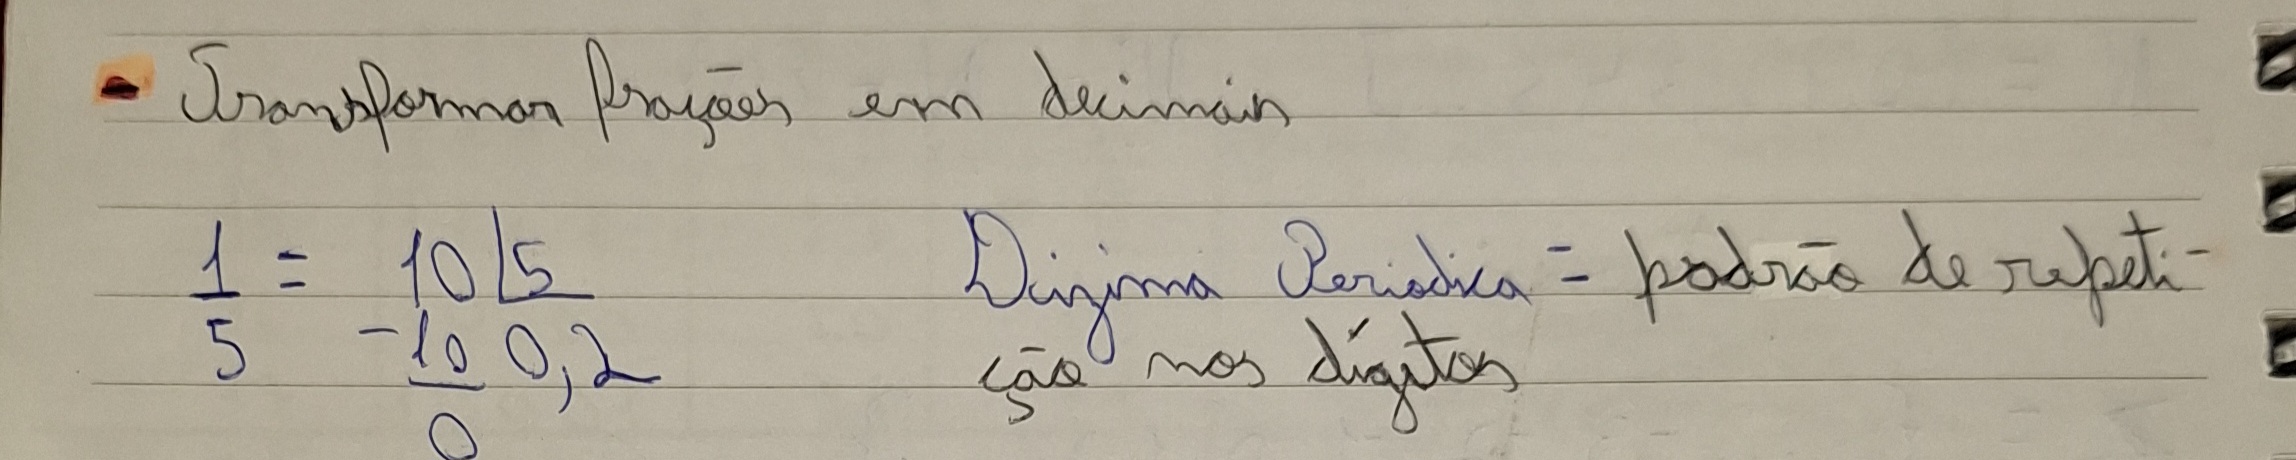 - Transformar frações em decimais
1 = 10 5 Dízima Periodica = padrão de repeti-
5 -10 0,2 ção nos dígitos
0